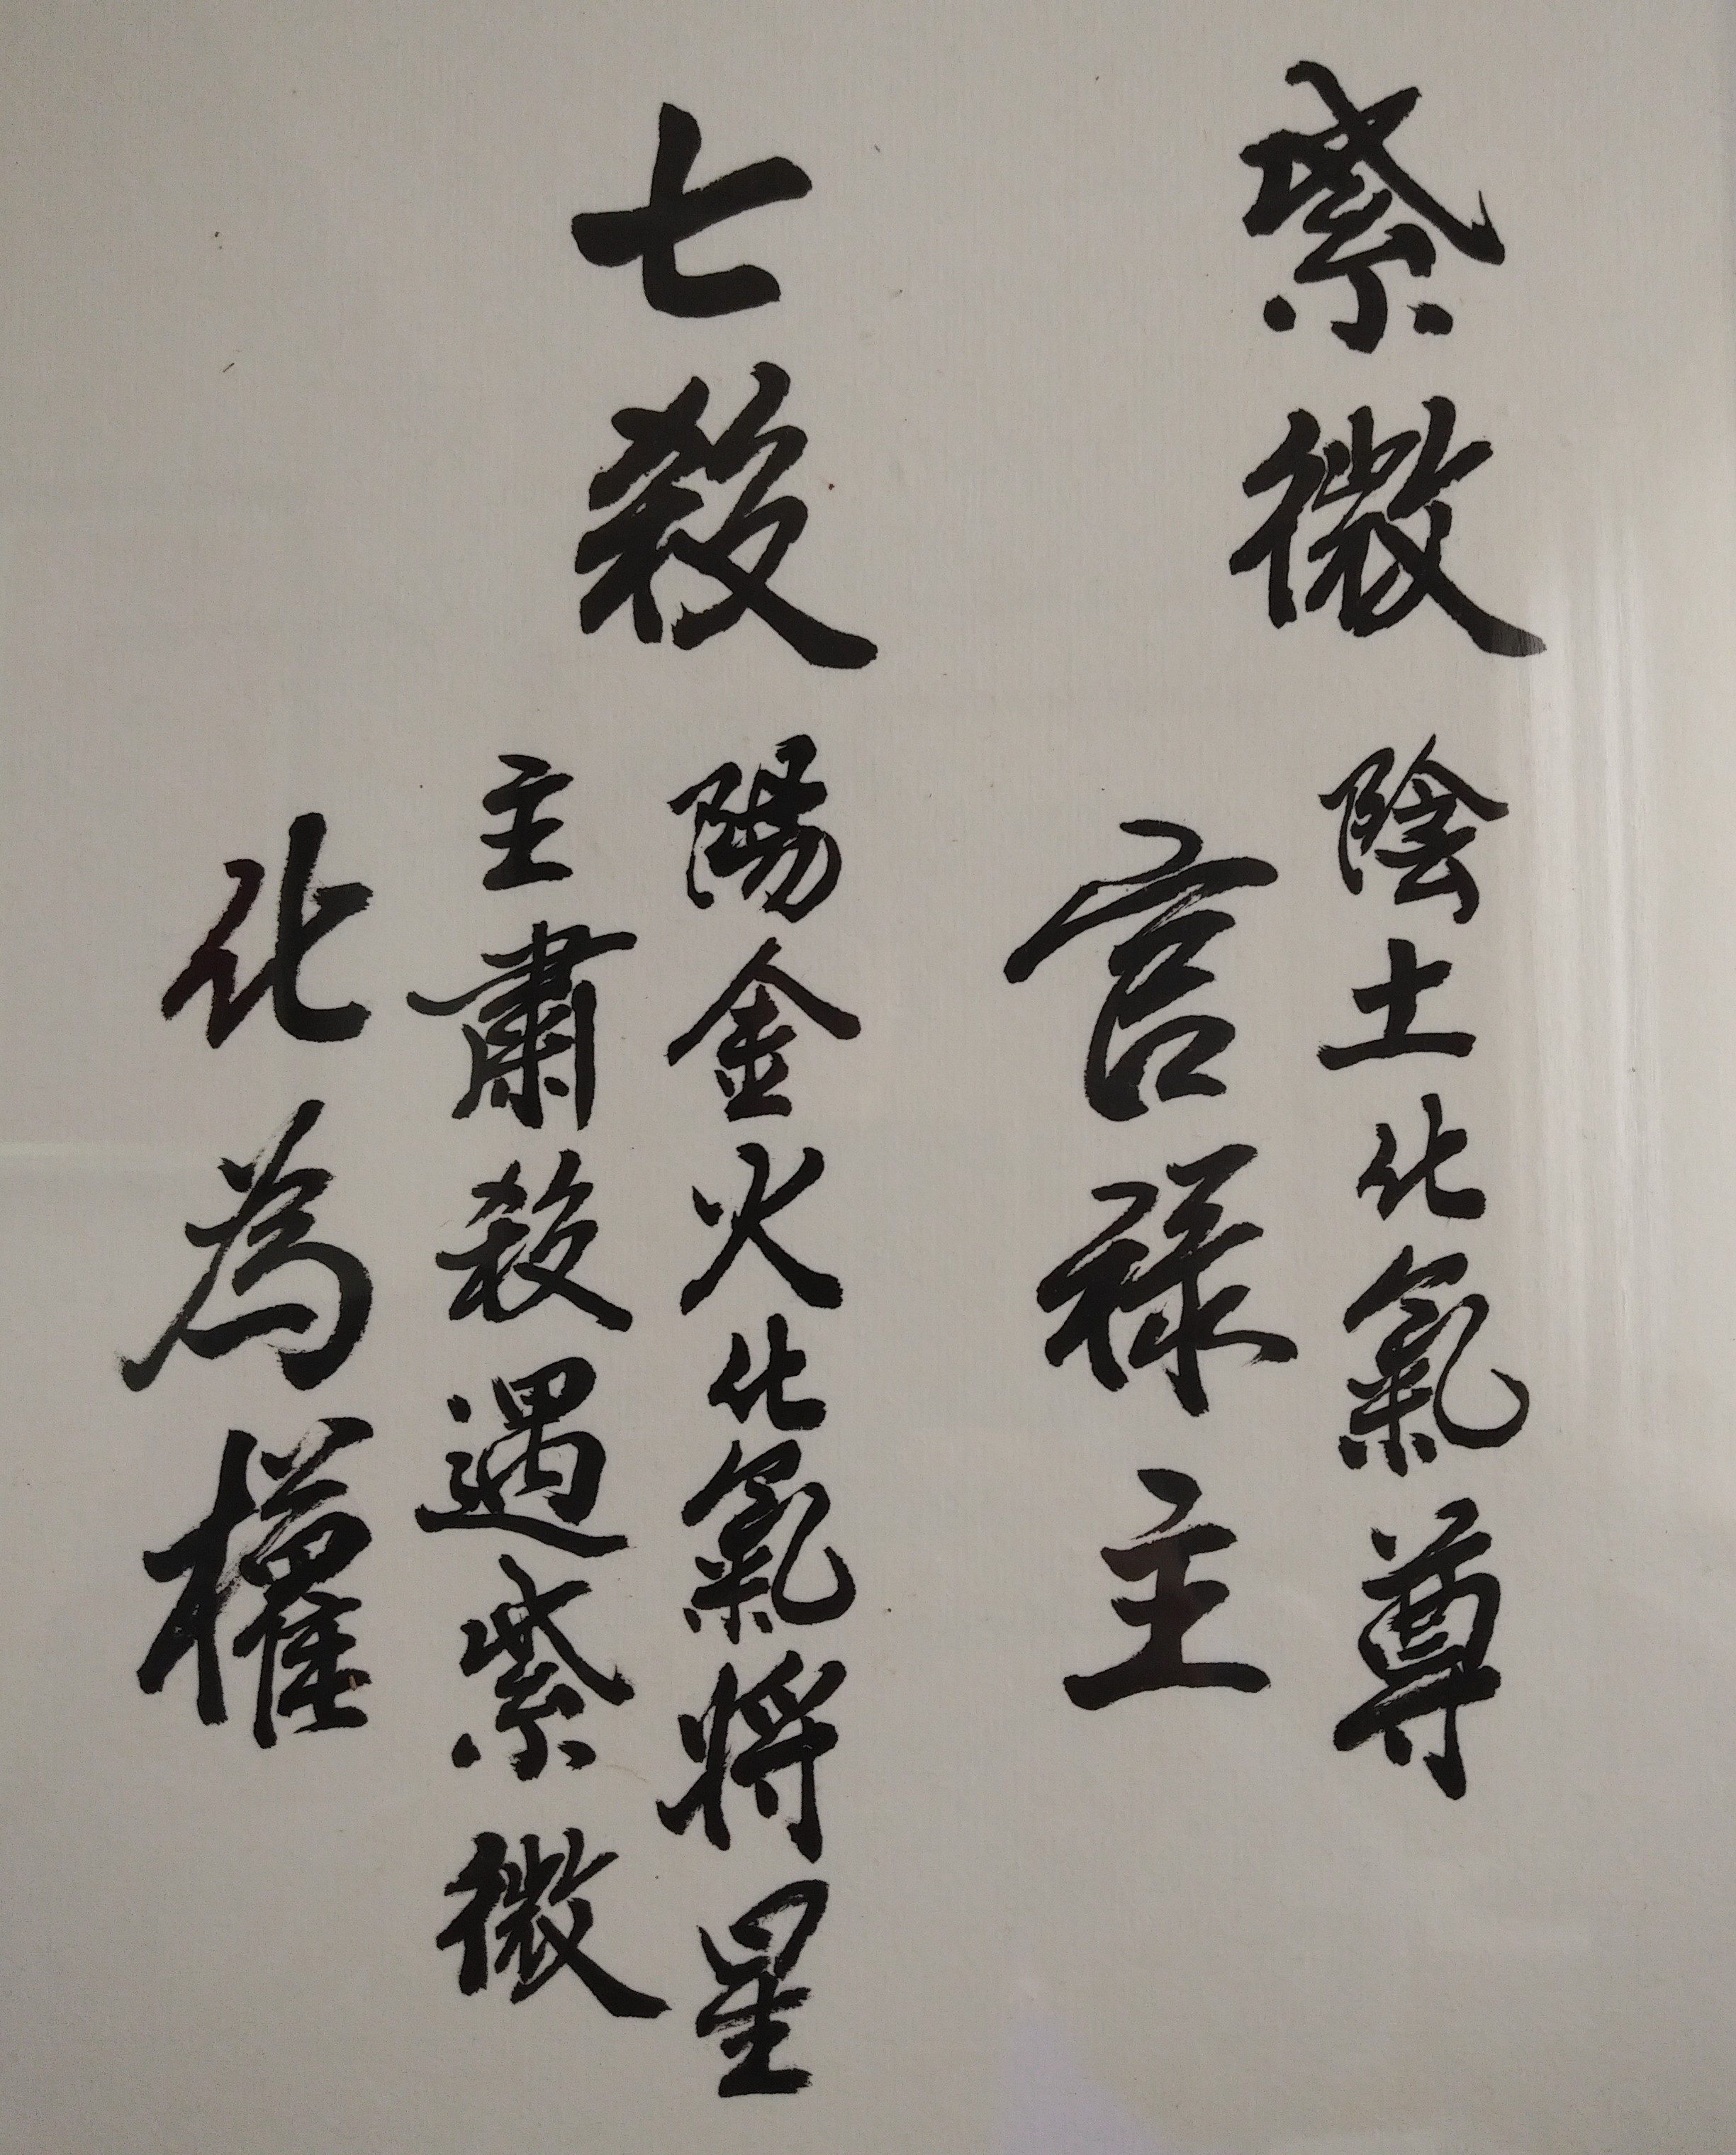 紫微
陰土化氣尊
官祿主
七殺
陽金火化氣將星
主肅殺遇紫微
化為權